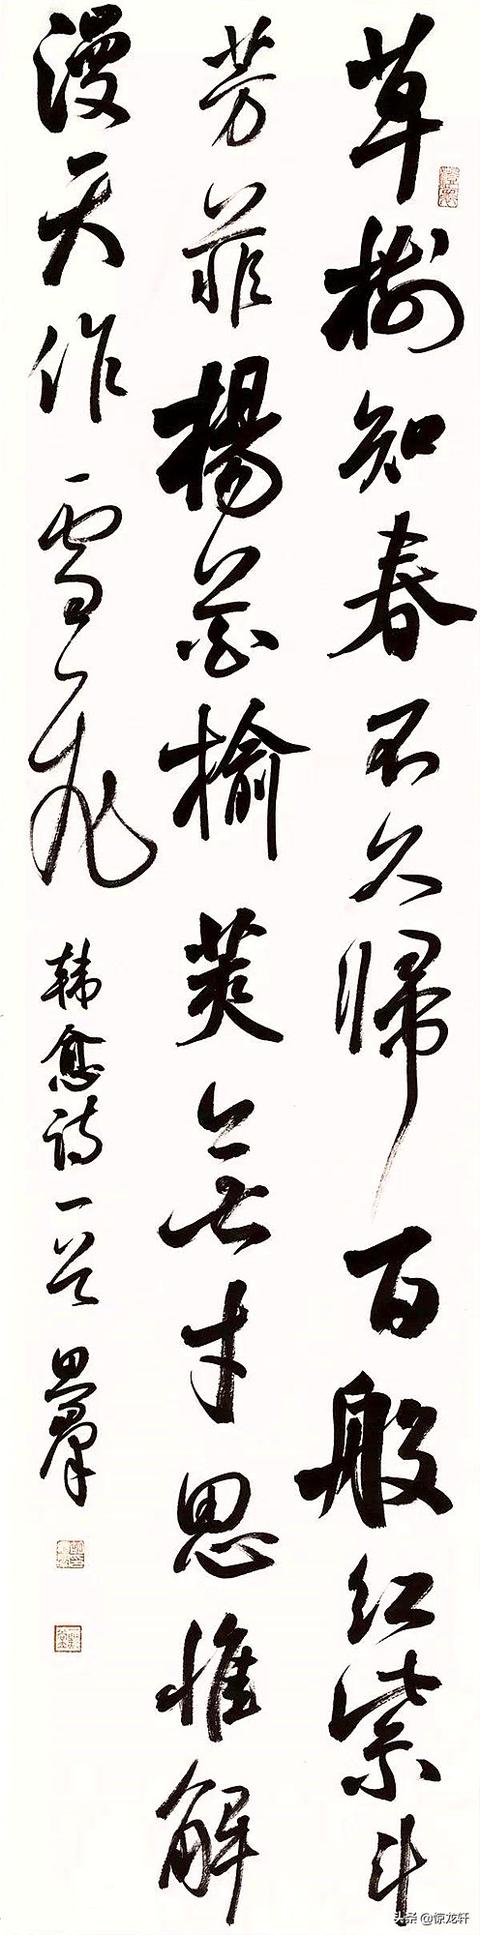 草樹知春不久歸百般红紫斗
芳菲楊花榆莢無才思惟解
漫天作雪飛
韩愈诗一首
头条 @惊龙轩